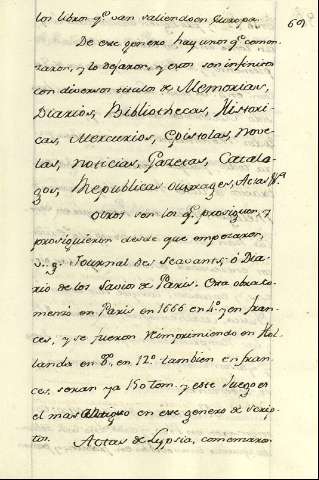 los libros q.ᵉ van saliendo en Europa. 69
De este genero hay unos q.ᵉ comen-
zaron, y lo dejaron, y estos son infinitos
con diversos titulos de Memorias,
Diarios, Bibliothecas, Histori-
cas, Mercurios, Epistolas, Nove-
las, Noticias, Gazetas, Catalo-
gos, Republicas ouvrages, Actas &ᵃ
Otros son los q.ᵉ prosiguen, y
prosiguieron desde que empezaron,
v. g. Journal des Scavants, ó Dia-
rio de los Savios de Paris. Esta obra co-
menzó en Paris en 1666 en 4.º y en fran-
ces, y se fueron reimprimiendo en Ho-
landa en 8.º, en 12.º tambien en fran-
ces, seran ya 150 tom. y este Juego es
el mas antiguo en este genero de scrip-
tos. Actas de Lypsia, comenzaron